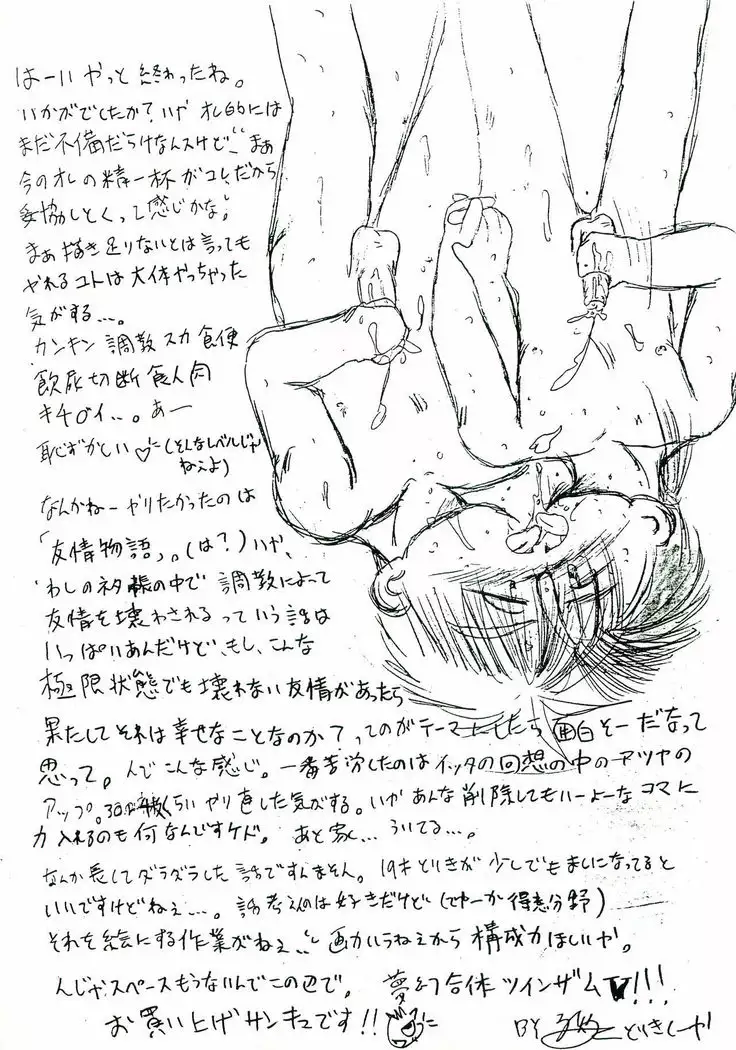 はーい やっと 終わったね。
いかがでしたか? いや オレ的には
まだ不備だらけなんスけど、まぁ
今のオレの精一杯がコレだから
妥協しとくって感じかな。
まぁ描き足りないとは言っても
やれるコトは大体やっちゃった
気がする…。
カンキン 調教 スカ 食便
飲尿 切断 食人肉
キチ○イ…。あー
恥ずかしい♡ (そんなレベルじゃ
ねえよ)
なんかねーやりたかったのは
「友情物語」。(は?) いや、
わしのネタ帳の中で 調教によって
友情を壊わされるっていう話は
いっぱいあんだけど、もし、こんな
極限状態でも壊れない友情があったら
果たしてそれは幸せなことなのか?ってのがテーマにしたら面白そーだなって
思って。んでこんな感じ。一番苦労したのはイッタの回想の中のアツヤの
アップ。くらいやり直した気がする。いやあんな削除してもいーよーなコマに
力入れるのも何なんですケド。あと…ういてる…。
なんか長してダラダラした話ですんません。19才とりきが少しでもまいになってると
いいですけどねぇ…。話考えんのは好きだけど(てゆーか得意分野)
それを絵にする作業がねぇ、画力いらねえから構成力ほしいや。
んじゃスペースもうないんでこの辺で。 夢幻合体ツインザムV!!!
お買い上げサンキュです!!
BY とりきしーや